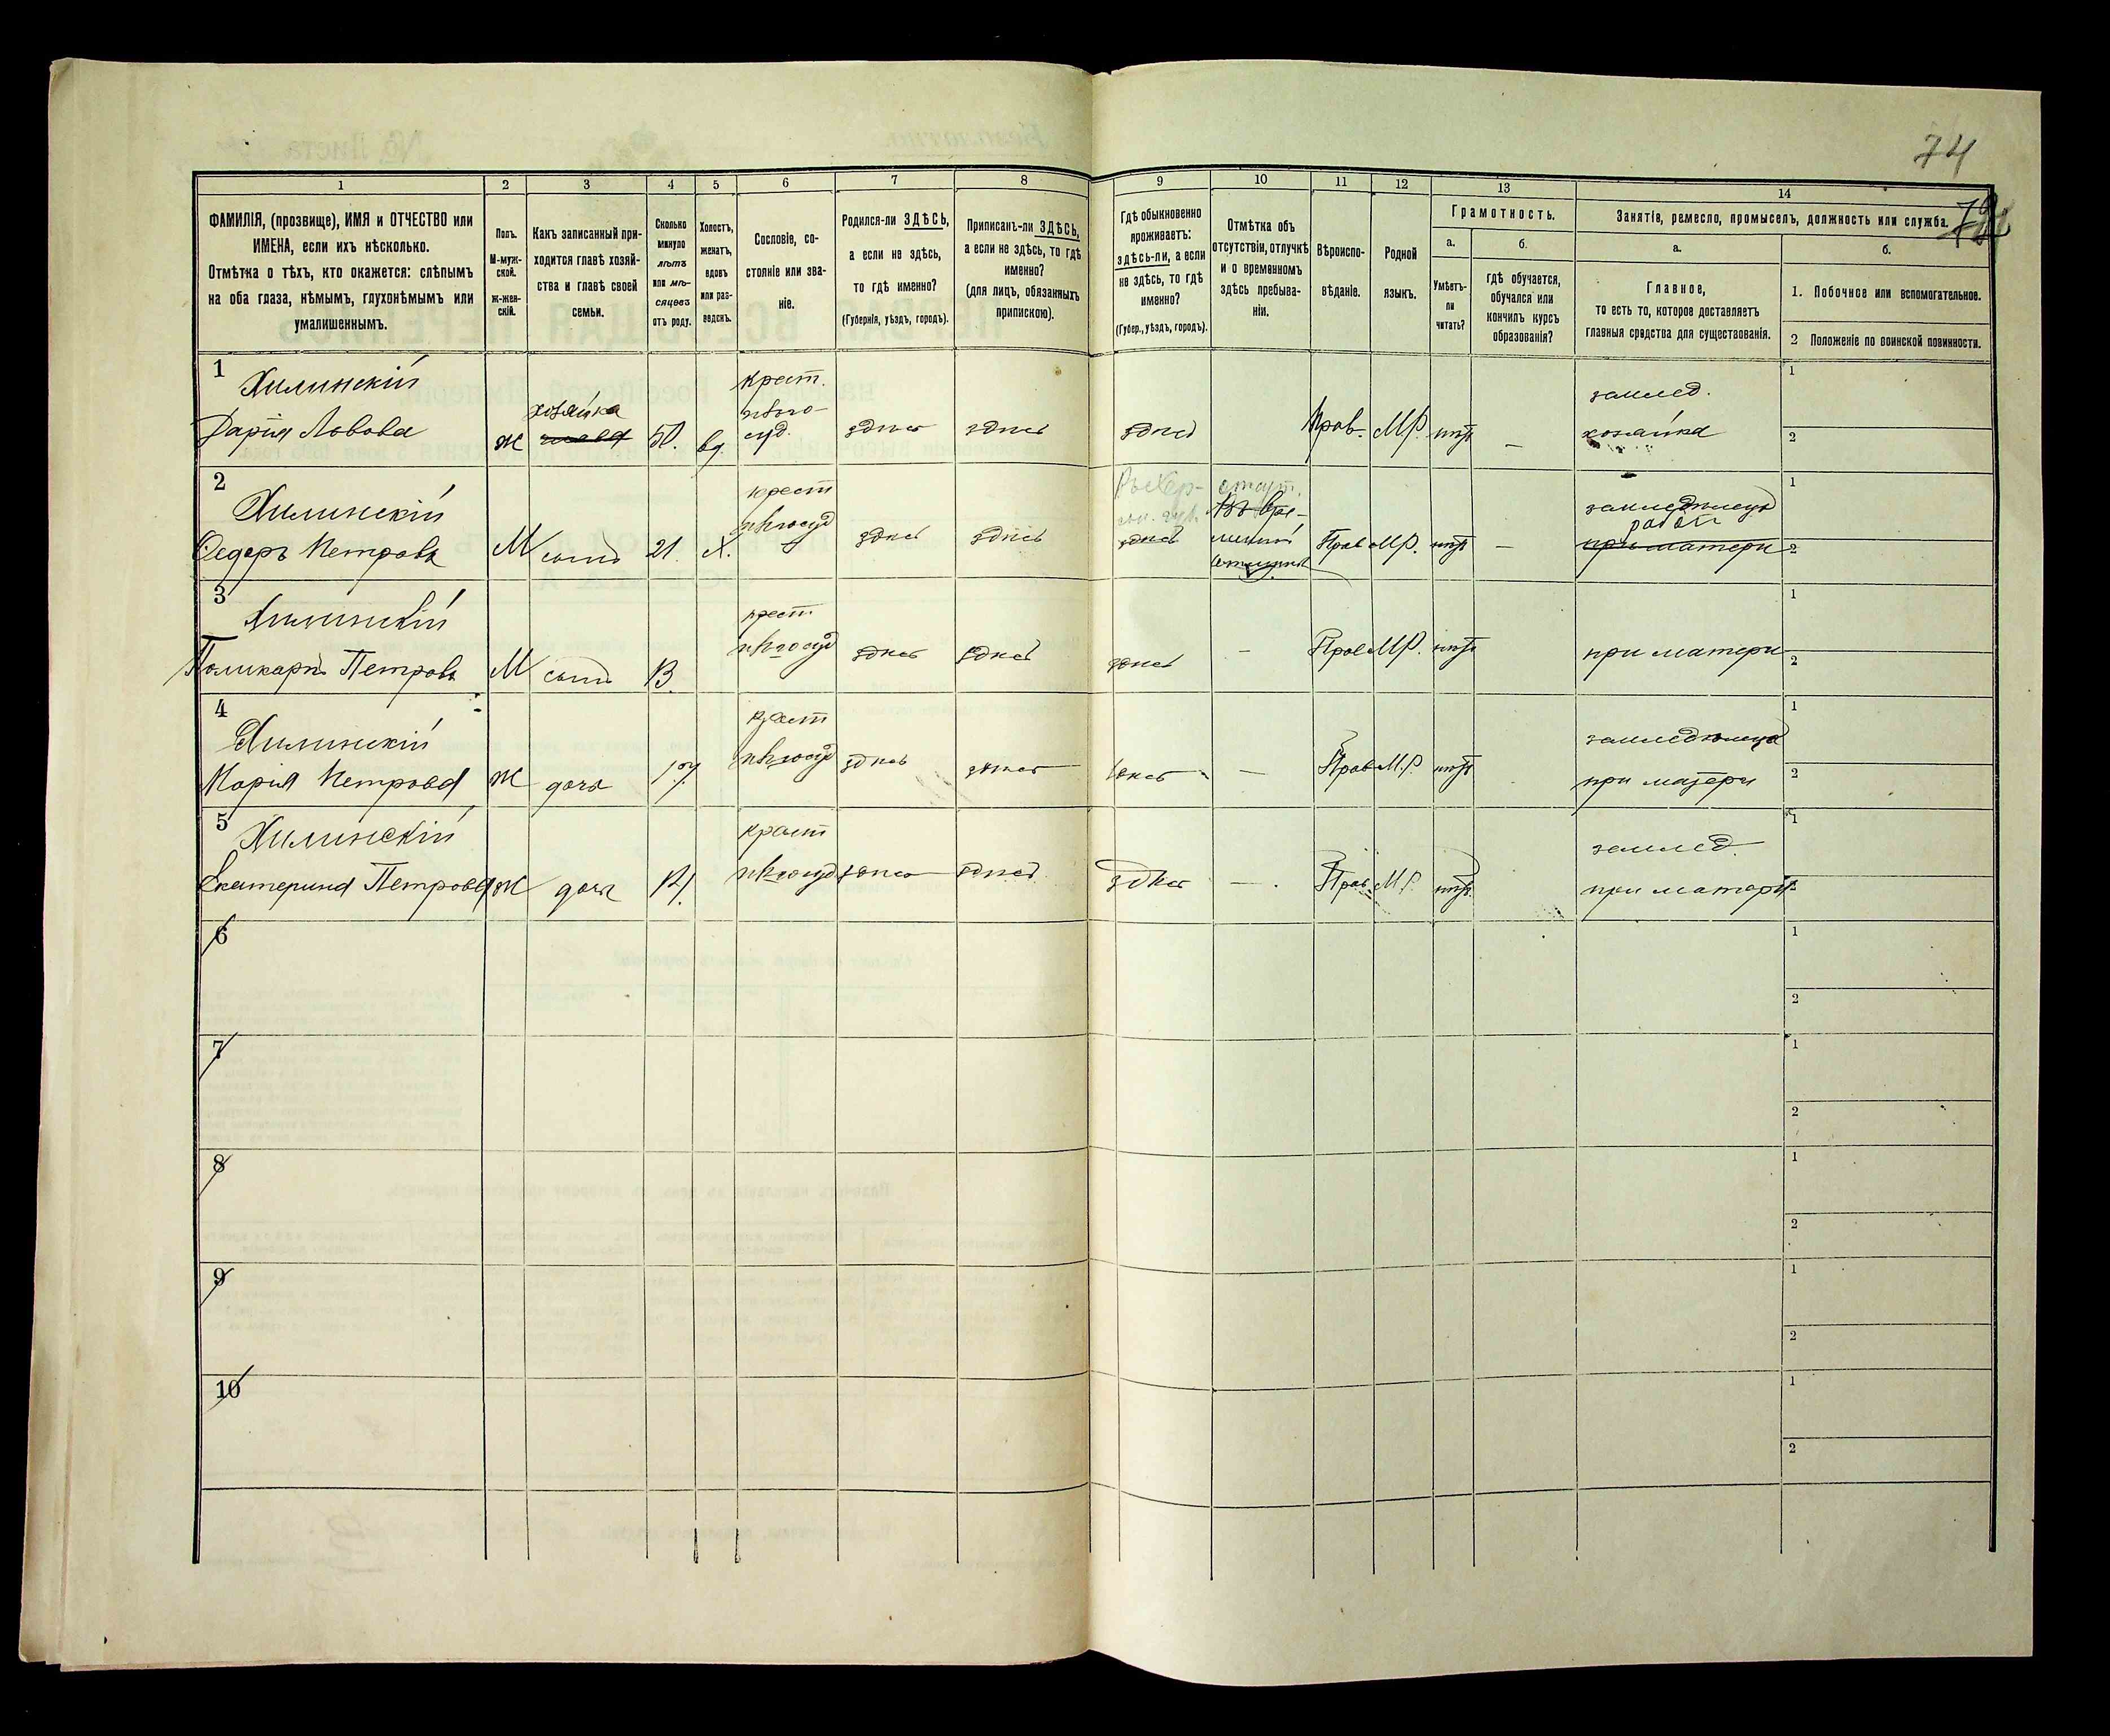 74
72
1 2 3 4 5 6 7 8 9 10 11 12 13 14
ФАМИЛІЯ, (прозвище), ИМЯ и ОТЧЕСТВО или
ИМЕНА, если ихъ нѣсколько.
Отмѣтка о тѣхъ, кто окажется: слѣпымъ
на оба глаза, нѣмымъ, глухонѣмымъ или
умалишеннымъ.
Полъ.
М-муж-
ской.
ж-жен-
скій.
Какъ записанный при-
ходится главѣ хозяй-
ства и главѣ своей
семьи.
Сколько
минуло
лѣтъ
или мѣ-
сяцевъ
отъ роду.
Холостъ,
женатъ,
вдовъ
или раз-
веденъ.
Сословіе, со-
стояніе или зва-
ніе.
Родился-ли ЗДѢСЬ,
а если не здѣсь,
то гдѣ именно?
(Губернія, уѣздъ, городъ).
Приписанъ-ли ЗДѢСЬ,
а если не здѣсь, то гдѣ
именно?
(для лицъ, обязанныхъ
припискою).
Гдѣ обыкновенно
проживаетъ:
здѣсь-ли, а если
не здѣсь, то гдѣ
именно?
(Губер., уѣздъ, городъ).
Отмѣтка объ
отсутствіи, отлучкѣ
и о временномъ
здѣсь пребыва-
ніи.
Вѣроиспо-
вѣданіе.
Родной
языкъ.
Грамотность.
а.
Умѣетъ-
ли
читать?
б.
Гдѣ обучается,
обучался или
кончилъ курсъ
образованія?
Занятіе, ремесло, промыселъ, должность или служба.
а.
Главное,
то есть то, которое доставляетъ
главныя средства для существованія.
б.
1. Побочное или вспомогательное.
2 Положеніе по воинской повинности.
1
Хилинскій
Дарія Лвова
ж
хозяйка
50.
вд.
крест.
здѣсь
здѣсь
здѣсь
Прав.
МР.
нѣтъ
—
землед.
хозяйка
1
2
2
Хилинскій
Федоръ Петровъ
М
сынъ
21.
Х.
крест
здѣсь
здѣсь
здѣсь
Прав
МР.
нѣтъ
—
при матери
1
2
3
Хилинскій
Поликарпъ Петровъ
М
сынъ
13.
крест
здѣсь
здѣсь
здѣсь
—
Прав
МР.
нѣтъ
при матери
1
2
4
Хилинскій
Марія Петрова
Ж
дочь
17.
крест
здѣсь
здѣсь
здѣсь
—
Прав
М.Р.
нѣтъ
при матери
1
2
5
Хилинскій
Екатерина Петрова
Ж
дочь
крест
здѣсь
здѣсь
здѣсь
—.
Прав.
МР
нѣтъ.
землед.
при матери
1
2
6
1
2
7
1
2
8
1
2
9
1
2
10
1
2